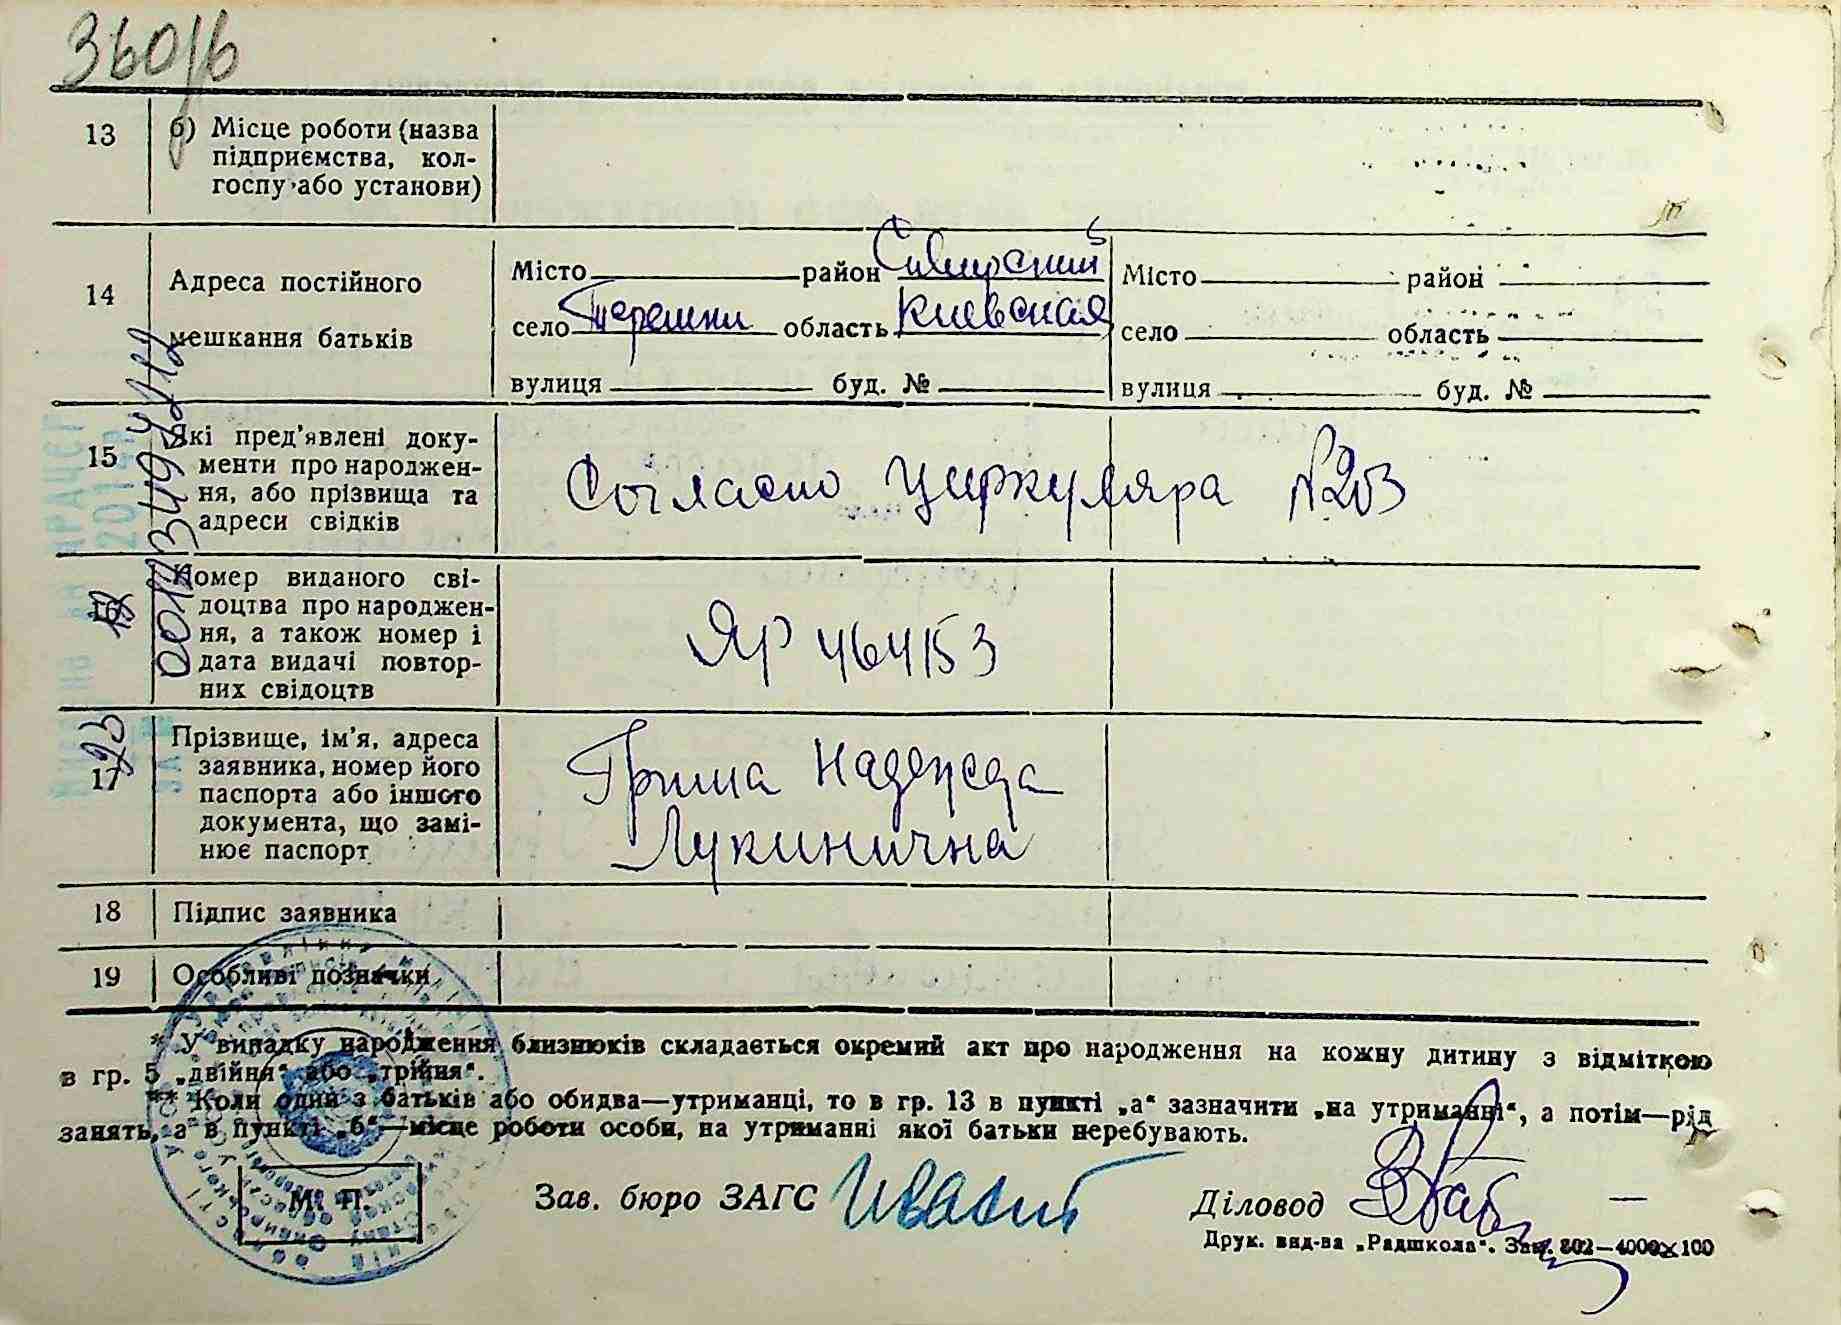 360/6
13 б) Місце роботи (назва
підприємства, кол-
госпу або установи)
14 Адреса постійного
мешкання батьків
Місто район Сквирский
село Терешки область Киевская
вулиця буд. №
Місто район
село область
вулиця буд. №
15 Які пред'явлені доку-
менти про народжен-
ня, або прізвища та
адреси свідків
Согласно Циркуляра №203
16 Номер виданого сві-
доцтва про народжен-
ня, а також номер і
дата видачі повтор-
них свідоцтв
ЯР 464153
17 Прізвище, ім'я, адреса
заявника, номер його
паспорта або іншого
документа, що замі-
нює паспорт
Гриша Надежда
Лукинична
18 Підпис заявника
19 Особливі позначки
* У випадку народження близнюків складається окремий акт про народження на кожну дитину з відміткою
в гр. 5 „двійня“ або „трійня“.
** Коли один з батьків або обидва—утриманці, то в гр. 13 в пункті „а“ зазначити „на утриманні“, а потім—рід
занять, а в пункті „б“—місце роботи особи, на утриманні якої батьки перебувають.
М. П.
Зав. бюро ЗАГС
Діловод
Друк. вид-ва „Радшкола“. Зам. 802—4000×100